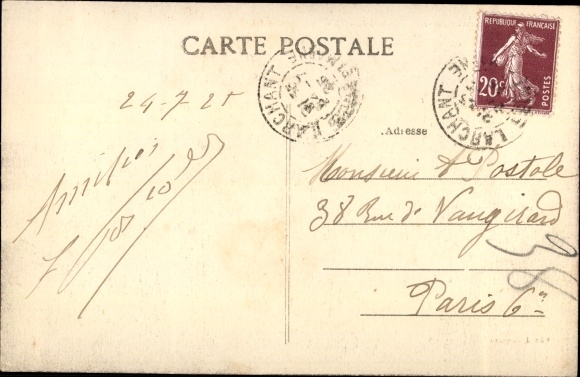 CARTE POSTALE
REPUBLIQUE FRANÇAISE
20c
POSTES
LARCHANT
LARCHANT
24-7-25
Adresse
Monsieur A Postole
38 Rue de Vaugirard
38
Paris 6e
Amitiés